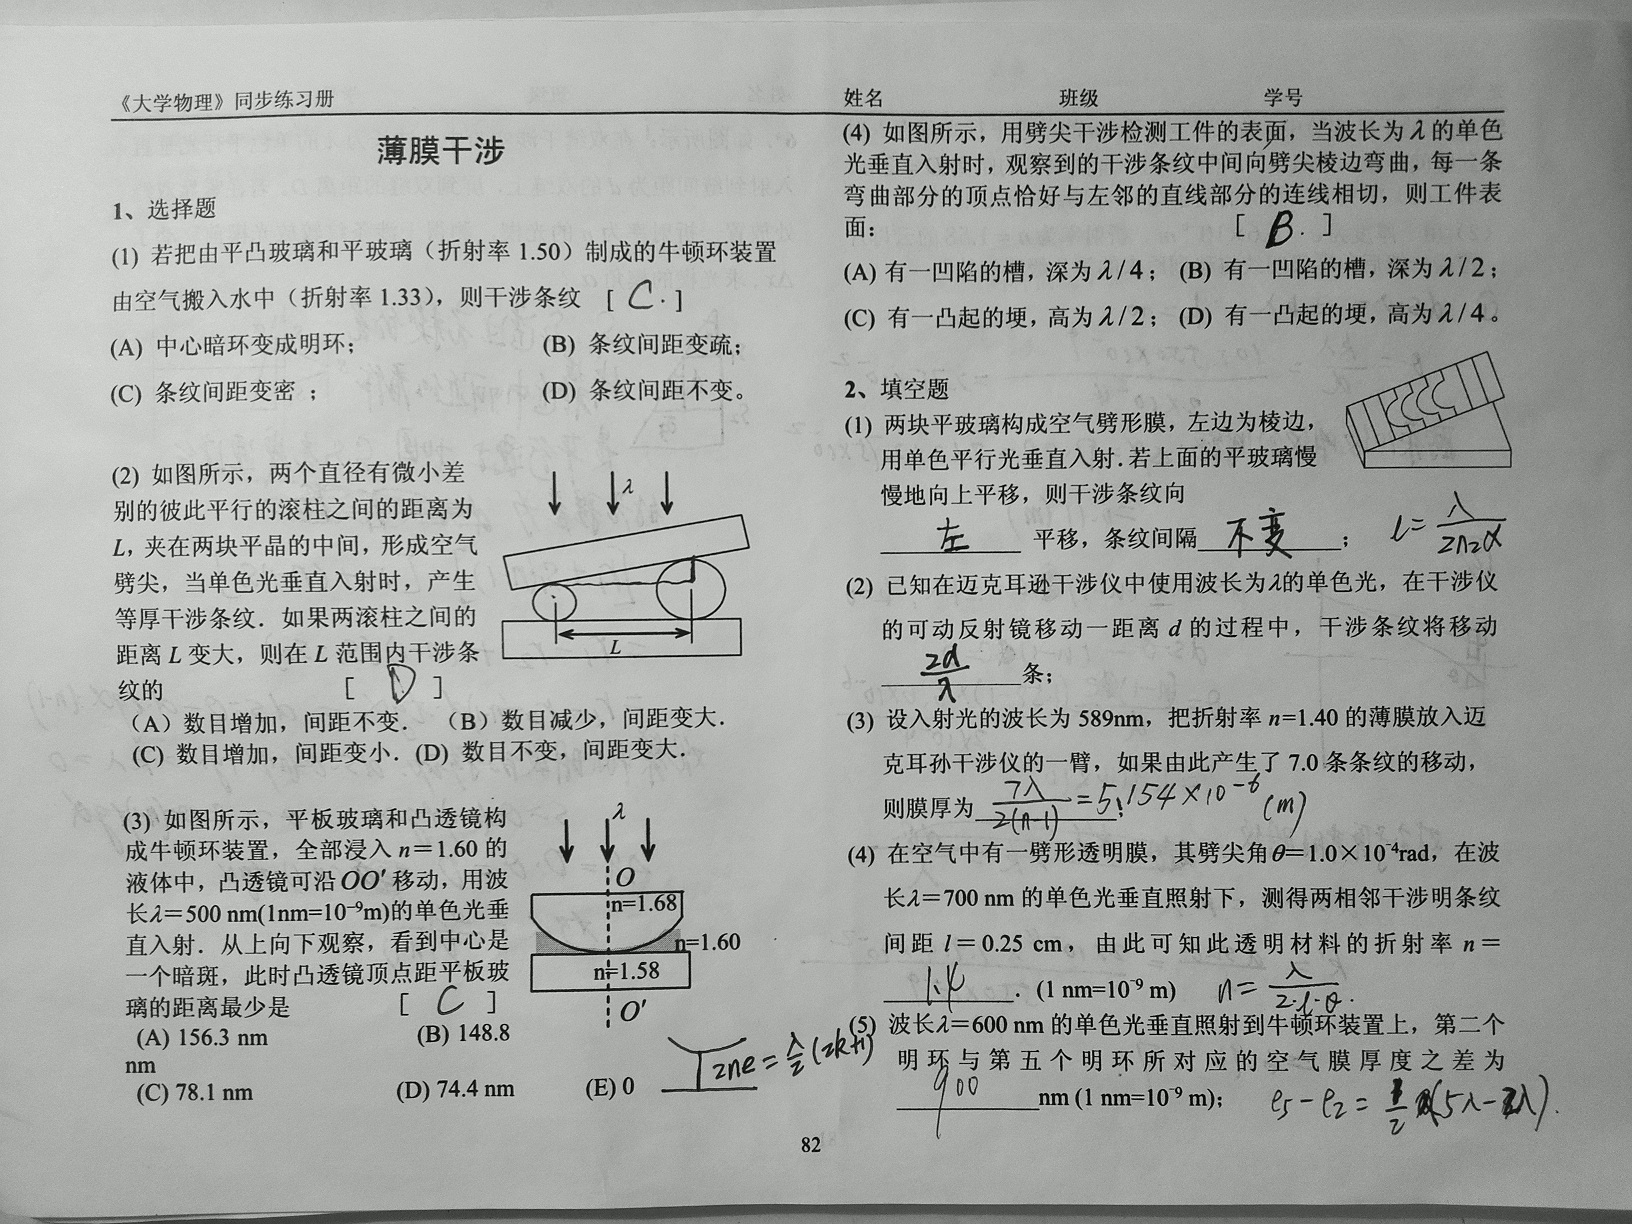 《大学物理》同步练习册
姓名 班级 学号
薄膜干涉
1、选择题
(1) 若把由平凸玻璃和平玻璃（折射率 1.50）制成的牛顿环装置
由空气搬入水中（折射率 1.33），则干涉条纹 [ C. ]
(A) 中心暗环变成明环; (B) 条纹间距变疏;
(C) 条纹间距变密 ; (D) 条纹间距不变。
(2) 如图所示，两个直径有微小差
别的彼此平行的滚柱之间的距离为
L, 夹在两块平晶的中间，形成空气
劈尖，当单色光垂直入射时，产生
等厚干涉条纹．如果两滚柱之间的
距离 L 变大，则在 L 范围内干涉条
纹的 [ D ]
(A) 数目增加，间距不变． (B) 数目减少，间距变大．
(C) 数目增加，间距变小．(D) 数目不变，间距变大．
λ
L
(3) 如图所示，平板玻璃和凸透镜构
成牛顿环装置，全部浸入 n＝1.60 的
液体中，凸透镜可沿 OO′ 移动，用波
长λ＝500 nm(1nm=10⁻⁹m)的单色光垂
直入射．从上向下观察，看到中心是
一个暗斑，此时凸透镜顶点距平板玻
璃的距离最少是 [ C ]
(A) 156.3 nm (B) 148.8
nm
(C) 78.1 nm (D) 74.4 nm (E) 0
λ
O
n=1.68
n=1.60
n=1.58
O′
2ne = λ/2 (2k+1)
(4) 如图所示，用劈尖干涉检测工件的表面，当波长为 λ 的单色
光垂直入射时，观察到的干涉条纹中间向劈尖棱边弯曲，每一条
弯曲部分的顶点恰好与左邻的直线部分的连线相切，则工件表
面: [ B. ]
(A) 有一凹陷的槽，深为 λ/4； (B) 有一凹陷的槽，深为 λ/2；
(C) 有一凸起的埂，高为 λ/2； (D) 有一凸起的埂，高为 λ/4。
2、填空题
(1) 两块平玻璃构成空气劈形膜，左边为棱边，
用单色平行光垂直入射.若上面的平玻璃慢
慢地向上平移，则干涉条纹向
左 平移，条纹间隔 不变 ； l = λ/2n₂α
(2) 已知在迈克耳逊干涉仪中使用波长为λ的单色光，在干涉仪
的可动反射镜移动一距离 d 的过程中，干涉条纹将移动
2d/λ 条;
(3) 设入射光的波长为 589nm，把折射率 n=1.40 的薄膜放入迈
克耳孙干涉仪的一臂，如果由此产生了 7.0 条条纹的移动，
则膜厚为 7λ/2(n-1) = 5.154×10⁻⁶ (m) ;
(4) 在空气中有一劈形透明膜，其劈尖角θ＝1.0×10⁻⁴rad，在波
长λ＝700 nm 的单色光垂直照射下，测得两相邻干涉明条纹
间距 l＝0.25 cm，由此可知此透明材料的折射率 n＝
1.4 ．(1 nm=10⁻⁹ m) n = λ/2·l·θ.
(5) 波长λ＝600 nm 的单色光垂直照射到牛顿环装置上，第二个
明环与第五个明环所对应的空气膜厚度之差为
900 nm (1 nm=10⁻⁹ m); e₅ - e₂ = 1/2 (5λ-2λ).
82